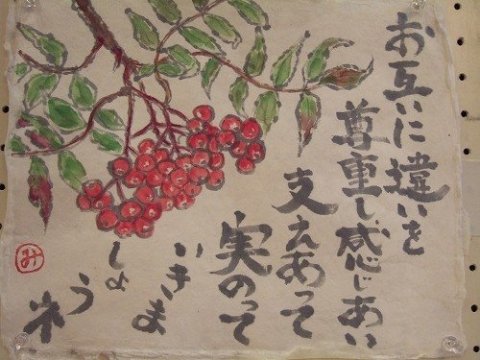 お互いに違いを
尊重し感じあい
支えあって
実のって
いきま
しょ
うネ
み